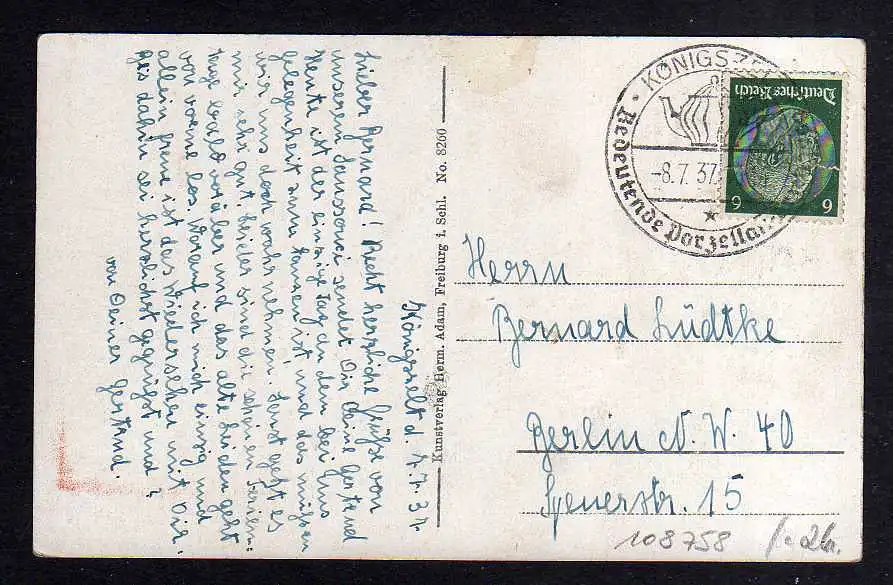 Königszelt d. 7.7.37.
Lieber Bernard! Recht herzliche Grüße von
unserem Sanssouci sendet Dir Deine Gertrud
Heute ist der einzige Tag an dem bei uns
Gelegenheit zum tanzen ist, und das müssen
wir uns doch wahrnehmen. Sonst geht es
mir sehr gut leider sind die schönen Ferien-
tage bald vorüber und das alte Leiden geht
von vorne los. Worauf ich mich einzig und
allein freue ist das Wiedersehen mit Dir.
Bis dahin sei herzlichst gegrüßt und ?
von Deiner Gertrud.
Kunstverlag Herm. Adam, Freiburg i. Schl. No. 8260
KÖNIGSZEL
-8.7.37
Bedeutende Porzellan
Deutsches Reich
6 6
Herrn
Bernard Lüdtke
Berlin N. W. 40
Spenerstr. 15
108758